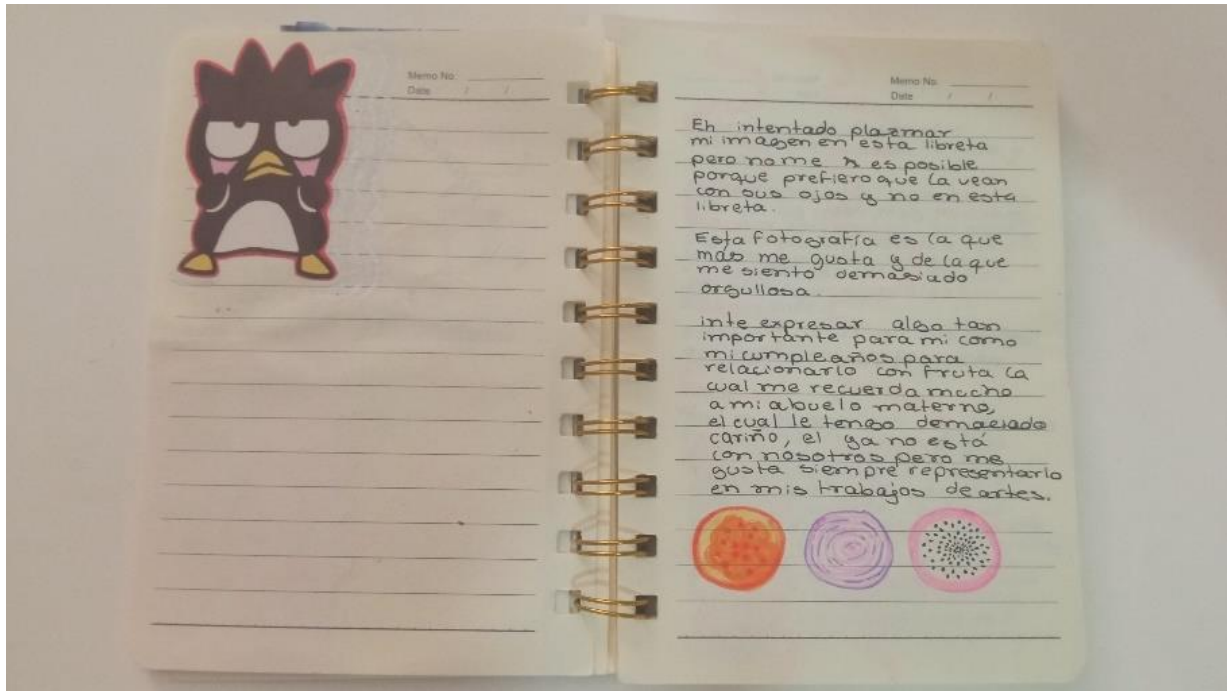 Memo No.
Date / /
Memo No.
Date / /
Eh intentado plazmar
mi imagen en esta libreta
pero no me es posible
porque prefiero que la vean
con sus ojos y no en esta
libreta.
Esta fotografía es la que
más me gusta y de la que
me siento demasiado
orgullosa.
inte expresar algo tan
importante para mi como
mi cumpleaños para
relacionarlo con fruta la
cual me recuerda mucho
a mi abuelo materno,
el cual le tengo demaciado
cariño, el ya no está
con nosotros pero me
gusta siempre representarlo
en mis trabajos de artes.